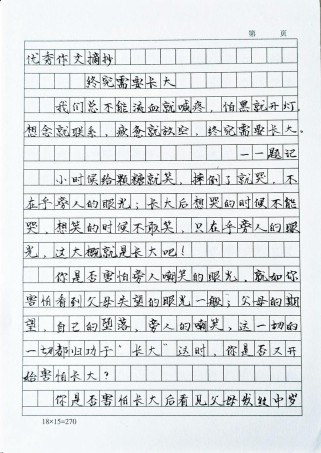 第 页
优秀作文摘抄
终究需要长大
我们总不能流血就喊疼，怕黑就开灯，
想念就联系，疲惫就放空，终究需要长大。
——题记
小时候给颗糖就笑，摔倒了就哭，不
在乎旁人的眼光；长大后想哭的时候不能
哭，想笑的时候不敢笑，只在乎旁人的眼
光，这大概就是长大吧！
你是否害怕旁人嘲笑的眼光，就如你
害怕看到父母失望的眼光一般；父母的期
望，自己的堕落，旁人的嘲笑，这一切的
一切都归功于“长大”这时，你是否又开
始害怕长大？
你是否害怕长大后看见父母 中岁
18×15=270